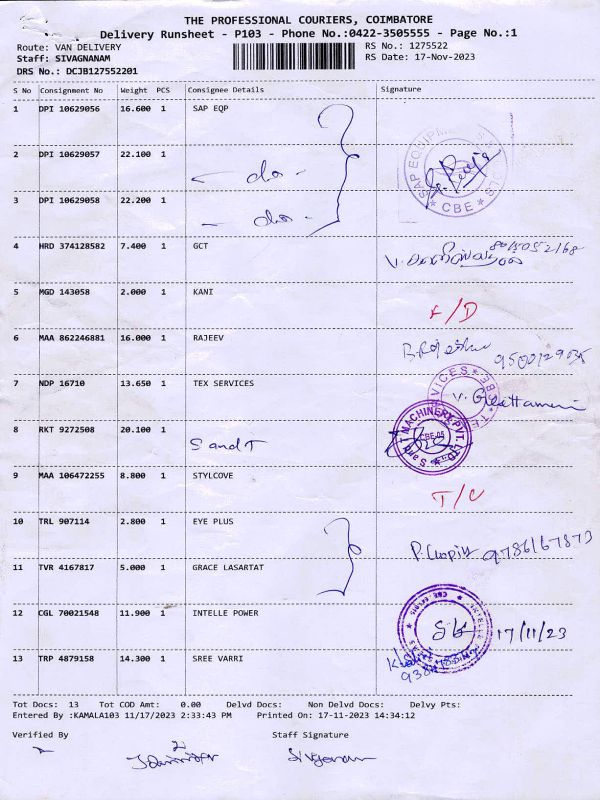 THE PROFESSIONAL COURIERS, COIMBATORE
Delivery Runsheet - P103 - Phone No.:0422-3505555 - Page No.:1
Route: VAN DELIVERY
RS No.: 1275522
Staff: SIVAGNANAM
RS Date: 17-Nov-2023
DRS No.: DCJB127552201
S No Consignment No Weight PCS Consignee Details Signature
1 DPI 10629056 16.600 1 SAP EQP
2 DPI 10629057 22.100 1 - do -
3 DPI 10629058 22.200 1 - do -
SAP EQUIPM
CBE
4 HRD 374128582 7.400 1 GCT
5 MGD 143058 2.000 1 KANI
/D
6 MAA 862246881 16.000 1 RAJEEV
7 NDP 16710 13.650 1 TEX SERVICES
VICES * CBE * TE
8 RKT 9272508 20.100 1 S and T
S and T MACHINERY PVT. LTD
CBE-05
9 MAA 106472255 8.800 1 STYLCOVE T/C
10 TRL 907114 2.800 1 EYE PLUS
11 TVR 4167817 5.000 1 GRACE LASARTAT
12 CGL 70021548 11.900 1 INTELLE POWER 17/11/23
13 TRP 4879158 14.300 1 SREE VARRI
Tot Docs: 13 Tot COD Amt: 0.00 Delvd Docs: Non Delvd Docs: Delvy Pts:
Entered By :KAMALA103 11/17/2023 2:33:43 PM Printed On: 17-11-2023 14:34:12
Verified By Staff Signature